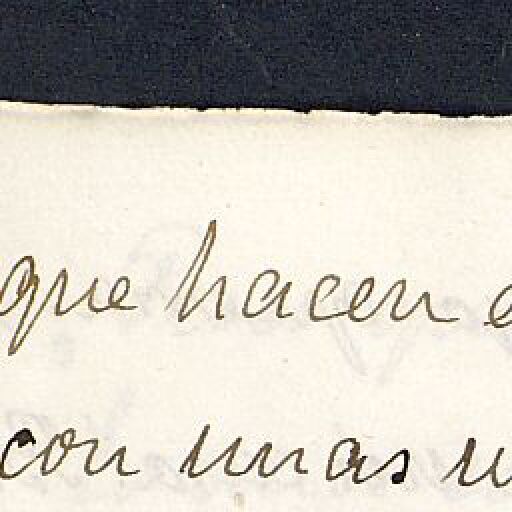 que hacen
con unas